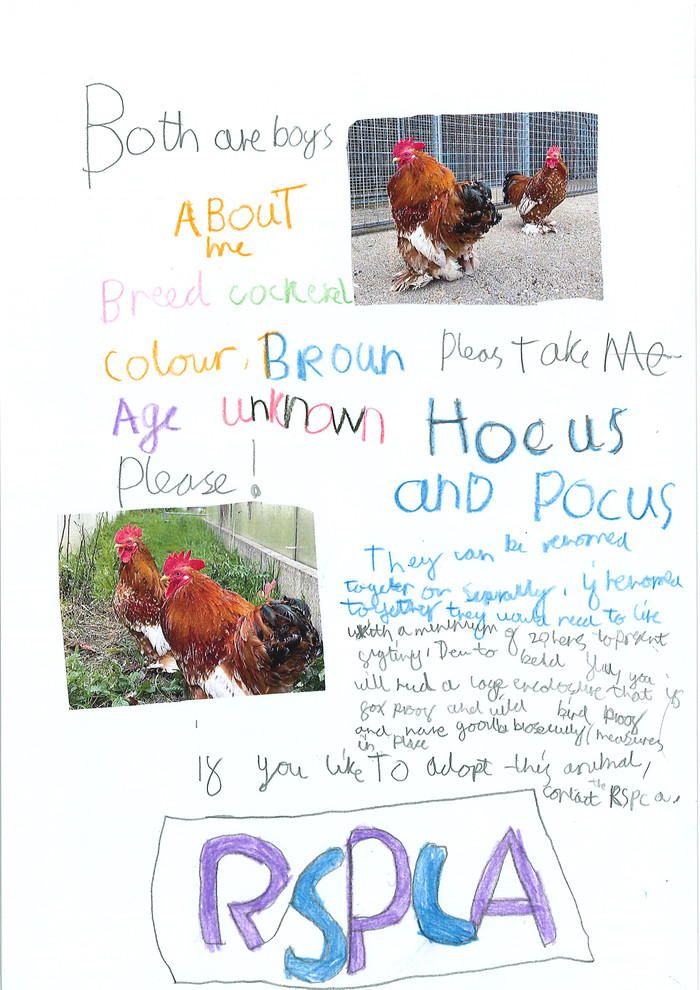 Both are boys
ABOUT
me
Breed cockerel
colour, Broun
Pleas Take Me
Age unknown
Please!
Hocus
and Pocus
They can be rehomed
togeter or seprally, if rehomed
together they would need to live
with a minimum of 20 hens to present
figting, Dew to beld fluy you
will need a large enclogsure that is
fox proof and wild bird proof
and have goodbe biosecully measures
in place
If you like To adopt this animal,
contact the RSPCa.
RSPCA